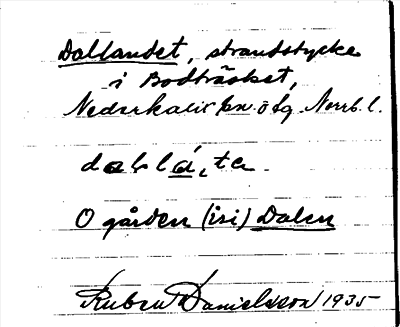 Dallandet, strandstycke
i Bodträsket,
Nederkalix sn. o tg. Norrb. l.
O gården (isi) Dalen
Ruben Danielsson 1935